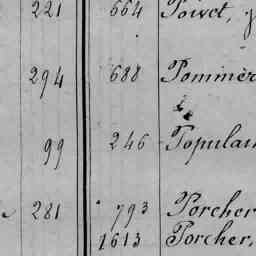 221 664 Poivet,
294 688 Pommer
99 246 Populai
281 793 Porcher
1613 Porcher,